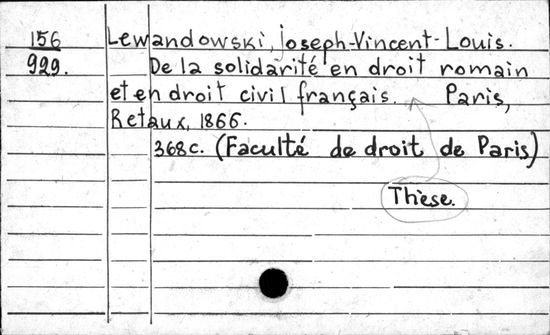 156 Lewandowski, Joseph-Vincent-Louis.
929. De la solidarité en droit romain
et en droit civil français. Paris,
Retaux, 1866.
368c. (Faculté de droit de Paris)
Thèse.